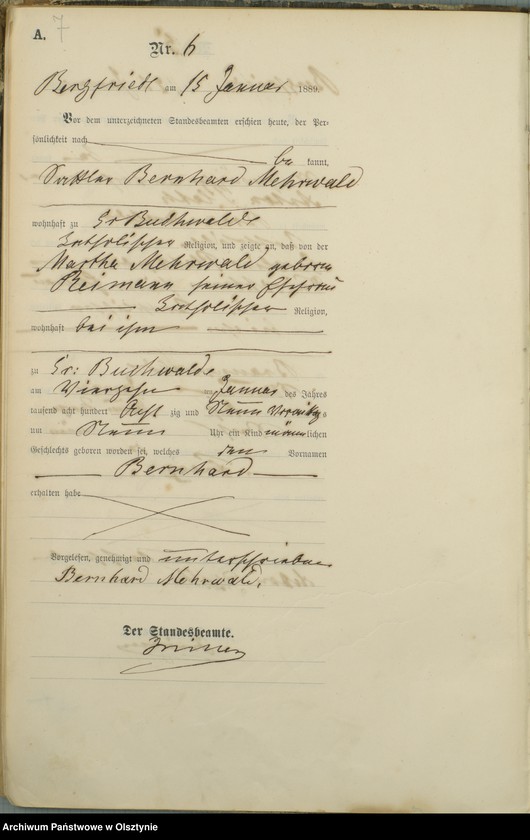 A. 7
Nr. 6
Bergfriede am 15 Januar 1889.
Vor dem unterzeichneten Standesbeamten erschien heute, der Per-
sönlichkeit nach
be kannt,
Sattler Bernhard Mehrwald
wohnhaft zu Gr Buchwalde
katholischer Religion, und zeigte an, daß von der
Martha Mehrwald geboren
Reimann seiner Ehefrau
katholischer Religion,
wohnhaft bei ihm
zu Gr: Buchwalde
am Vierzehn Januar des Jahres
tausend acht hundert Acht zig und Neun Vormittags
um Neun Uhr ein Kind männlichen
Geschlechts geboren worden sei, welches den Vornamen
Bernhard
erhalten habe
Vorgelesen, genehmigt und unterschrieben
Bernhard Mehrwald.
Der Standesbeamte.
Archiwum Państwowe w Olsztynie